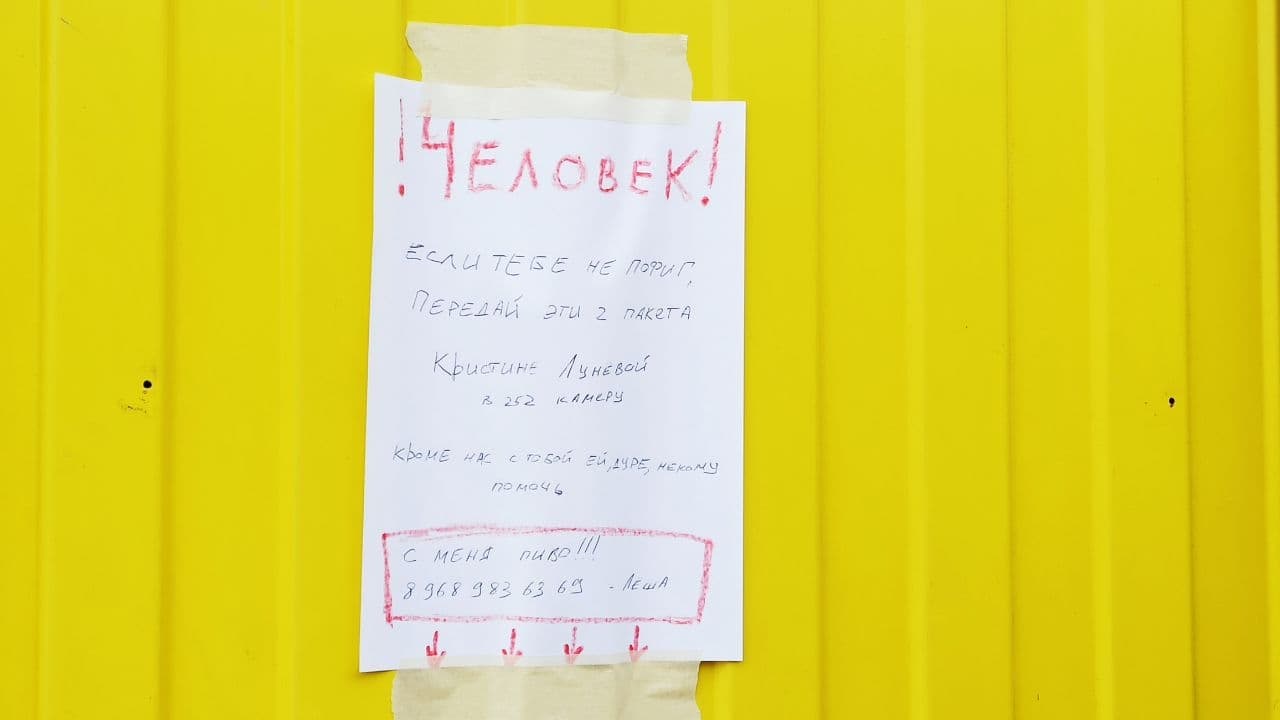 !ЧЕЛОВЕК!
ЕСЛИ ТЕБЕ НЕ ПОФИГ,
ПЕРЕДАЙ ЭТИ 2 ПАКЕТА
КРИСТИНЕ ЛУНЕВОЙ
В 252 КАМЕРУ
КРОМЕ НАС С ТОБОЙ ЕЙ, ДУРЕ, НЕКОМУ
ПОМОЧЬ
С МЕНЯ ПИВО!!!
8 968 983 63 69 - ЛЁША